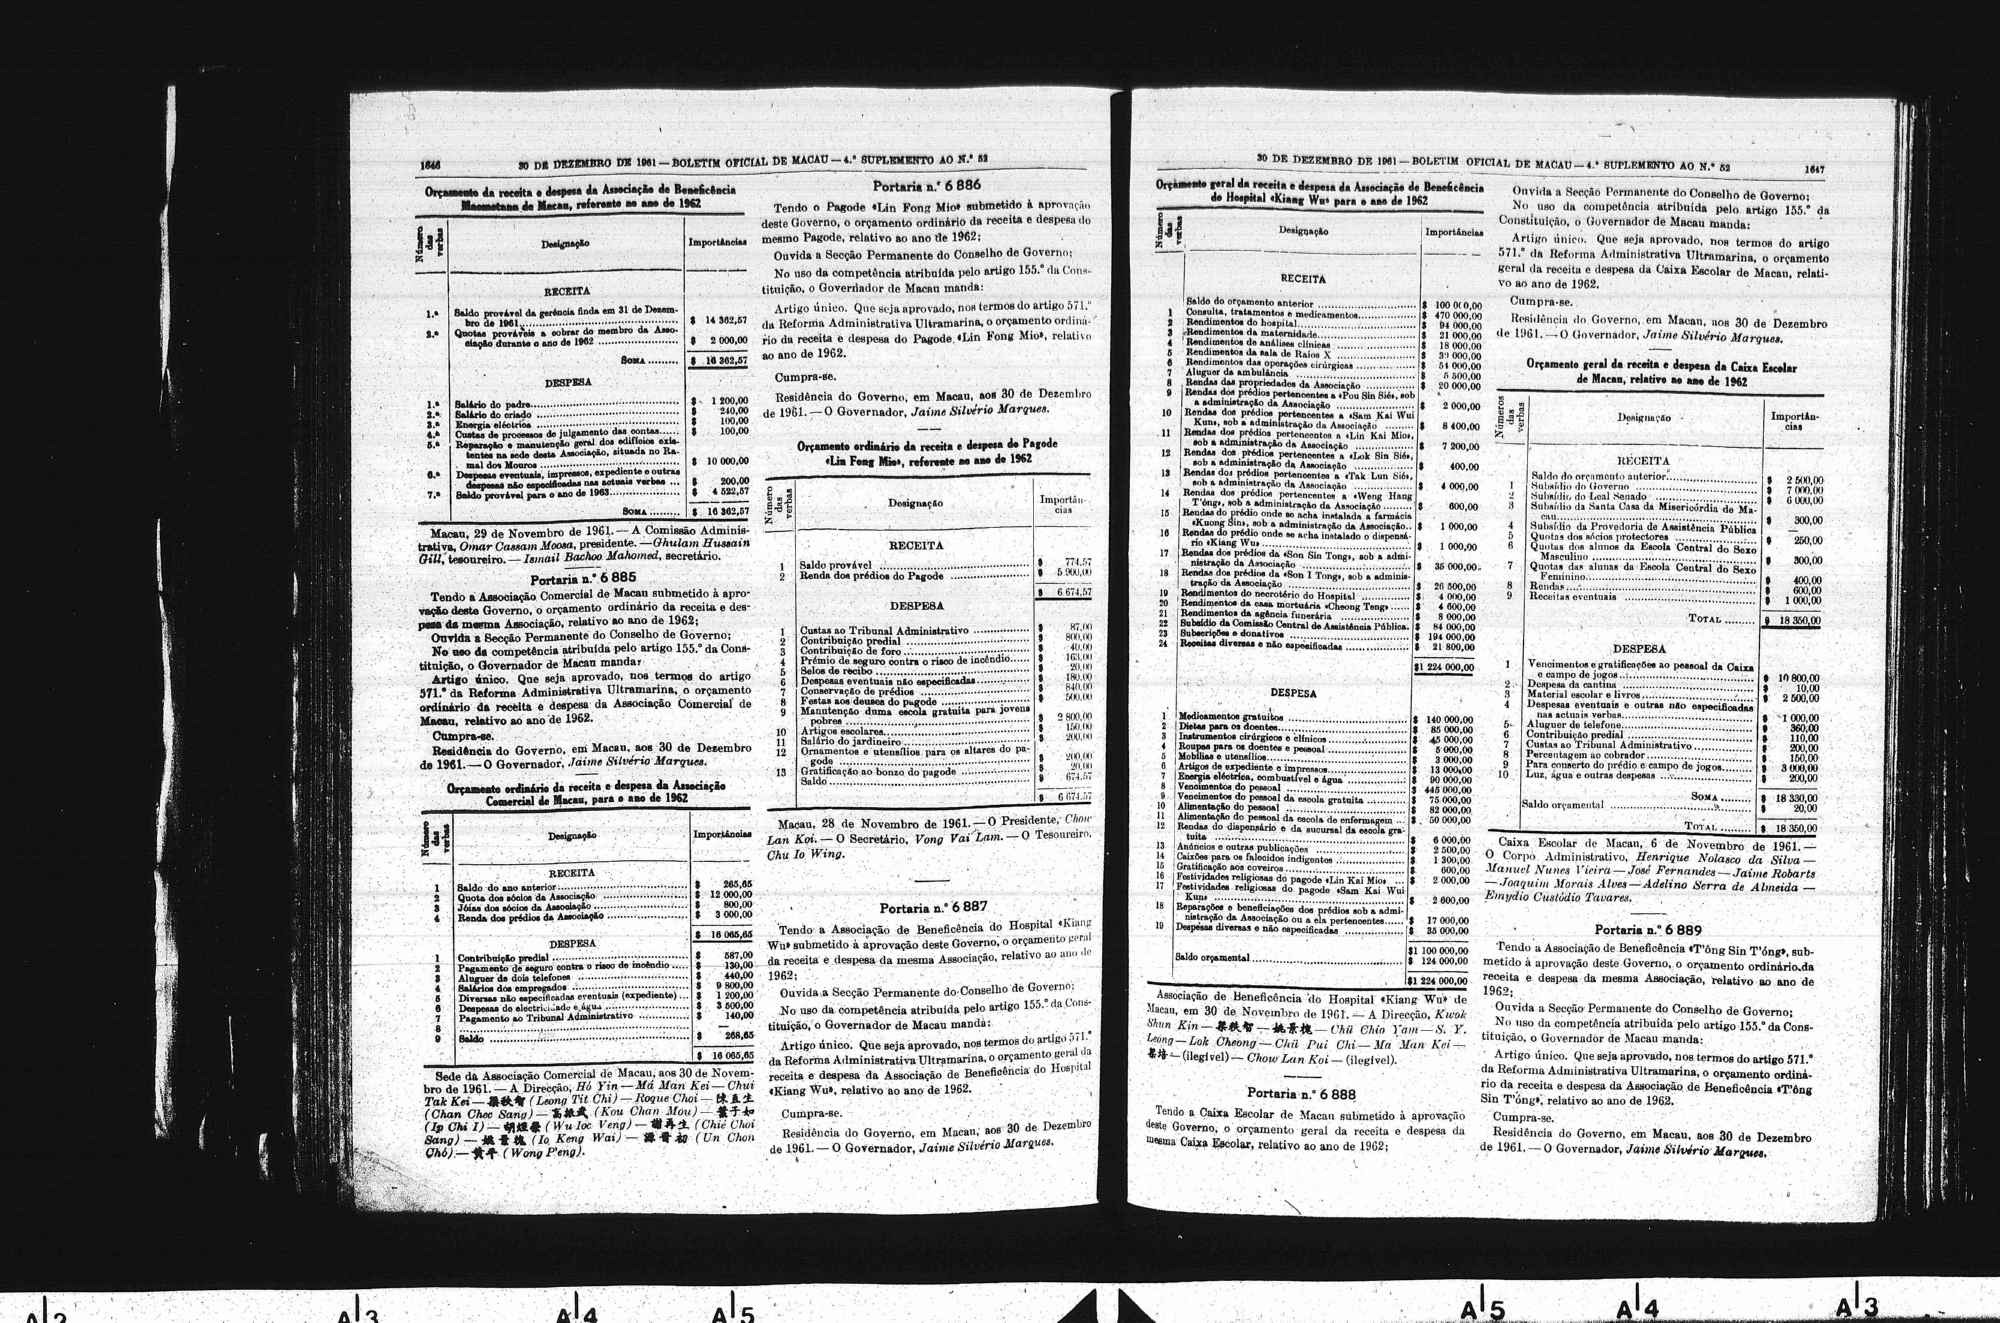 1646
30 DE DEZEMBRO DE 1961 — BOLETIM OFICIAL DE MACAU — 4.º SUPLEMENTO AO N.º 52
Orçamento da receita e despesa da Associação de Beneficência
Maometana de Macau, referente ao ano de 1962
Número das verbas
Designação
Importâncias
RECEITA
1.ª Saldo provável da gerência finda em 31 de Dezem-
bro de 1961 $ 14 362,57
2.ª Quotas prováveis a cobrar do membro da Asso-
ciação durante o ano de 1962 $ 2 000,00
SOMA $ 16 362,57
DESPESA
1.ª Salário do padre $ 1 200,00
2.ª Salário do criado $ 240,00
3.ª Energia eléctrica $ 100,00
4.ª Custas de processos de julgamento das contas $ 100,00
5.ª Reparação e manutenção geral dos edifícios exis-
tentes na sede desta Associação, situada no Ra-
mal dos Mouros $ 10 000,00
6.ª Despesas eventuais, impressos, expediente e outras
despesas não especificadas nas actuais verbas $ 200,00
7.ª Saldo provável para o ano de 1963 $ 4 522,57
SOMA $ 16 362,57
Macau, 29 de Novembro de 1961. — A Comissão Adminis-
trativa, Omar Cassam Moosa, presidente. — Ghulam Hussain
Gill, tesoureiro. — Ismail Bachoo Mahomed, secretário.
Portaria n.º 6 885
Tendo a Associação Comercial de Macau submetido à apro-
vação deste Governo, o orçamento ordinário da receita e des-
pesa da mesma Associação, relativo ao ano de 1962;
Ouvida a Secção Permanente do Conselho de Governo;
No uso da competência atribuída pelo artigo 155.º da Cons-
tituição, o Governador de Macau manda:
Artigo único. Que seja aprovado, nos termos do artigo
571.º da Reforma Administrativa Ultramarina, o orçamento
ordinário da receita e despesa da Associação Comercial de
Macau, relativo ao ano de 1962.
Cumpra-se.
Residência do Governo, em Macau, aos 30 de Dezembro
de 1961. — O Governador, Jaime Silvério Marques.
Orçamento ordinário da receita e despesa da Associação
Comercial de Macau, para o ano de 1962
Número das verbas
Designação
Importâncias
RECEITA
1 Saldo do ano anterior $ 265,65
2 Quota dos sócios da Associação $ 12 000,00
3 Jóias dos sócios da Associação $ 800,00
4 Renda dos prédios da Associação $ 3 000,00
$ 16 065,65
DESPESA
1 Contribuição predial $ 587,00
2 Pagamento de seguro contra o risco de incêndio $ 130,00
3 Aluguer de dois telefones $ 440,00
4 Salários dos empregados $ 9 800,00
5 Diversas não especificadas eventuais (expediente) $ 1 200,00
6 Despesas de electricidade e água $ 3 500,00
7 Pagamento ao Tribunal Administrativo $ 140,00
8 —
9 Saldo $ 268,65
$ 16 065,65
Sede da Associação Comercial de Macau, aos 30 de Novem-
bro de 1961. — A Direcção, Hó Yin — Má Man Kei — Chui
Tak Kei — 梁秩智 (Leong Tit Chi) — Roque Choi — 陳直生
(Chan Chec Sang) — 高振武 (Kou Chan Mou) — 葉子如
(Ip Chi I) — 胡煜榮 (Wu Ioc Veng) — 謝再生 (Chié Choi
Sang) — 姚景槐 (Io Keng Wai) — 源晋初 (Un Chon
Chó) — 黄平 (Wong P'eng).
Portaria n.º 6 886
Tendo o Pagode «Lin Fong Mio» submetido à aprovação
deste Governo, o orçamento ordinário da receita e despesa do
mesmo Pagode, relativo ao ano de 1962;
Ouvida a Secção Permanente do Conselho de Governo;
No uso da competência atribuída pelo artigo 155.º da Cons-
tituição, o Governador de Macau manda:
Artigo único. Que seja aprovado, nos termos do artigo 571.º
da Reforma Administrativa Ultramarina, o orçamento ordiná-
rio da receita e despesa do Pagode «Lin Fong Mio», relativo
ao ano de 1962.
Cumpra-se.
Residência do Governo, em Macau, aos 30 de Dezembro
de 1961. — O Governador, Jaime Silvério Marques.
Orçamento ordinário da receita e despesa do Pagode
«Lin Fong Mio», referente ao ano de 1962
Número das verbas
Designação
Importân-
cias
RECEITA
1 Saldo provável $ 774,57
2 Renda dos prédios do Pagode $ 5 900,00
$ 6 674,57
DESPESA
1 Custas ao Tribunal Administrativo $ 87,00
2 Contribuição predial $ 800,00
3 Contribuição de foro $ 40,00
4 Prémio de seguro contra o risco de incêndio $ 163,00
5 Selos de recibo $ 20,00
6 Despesas eventuais não especificadas $ 180,00
7 Conservação de prédios $ 840,00
8 Festas aos deuses do pagode $ 500,00
9 Manutenção duma escola gratuita para jovens
pobres $ 2 800,00
10 Artigos escolares $ 150,00
11 Salário do jardineiro $ 200,00
12 Ornamentos e utensílios para os altares do pa-
gode $ 200,00
13 Gratificação ao bonzo do pagode $ 20,00
Saldo $ 674,57
$ 6 674,57
Macau, 28 de Novembro de 1961. — O Presidente, Chow
Lan Koi. — O Secretário, Vong Vai Lam. — O Tesoureiro,
Chu Io Wing.
Portaria n.º 6 887
Tendo a Associação de Beneficência do Hospital «Kiang
Wu» submetido à aprovação deste Governo, o orçamento geral
da receita e despesa da mesma Associação, relativo ao ano de
1962;
Ouvida a Secção Permanente do Conselho de Governo;
No uso da competência atribuída pelo artigo 155.º da Cons-
tituição, o Governador de Macau manda:
Artigo único. Que seja aprovado, nos termos do artigo 571.º
da Reforma Administrativa Ultramarina, o orçamento geral da
receita e despesa da Associação de Beneficência do Hospital
«Kiang Wu», relativo ao ano de 1962.
Cumpra-se.
Residência do Governo, em Macau, aos 30 de Dezembro
de 1961. — O Governador, Jaime Silvério Marques.
30 DE DEZEMBRO DE 1961 — BOLETIM OFICIAL DE MACAU — 4.º SUPLEMENTO AO N.º 52
1647
Orçamento geral da receita e despesa da Associação de Beneficência
do Hospital «Kiang Wu» para o ano de 1962
Número das verbas
Designação
Importâncias
RECEITA
Saldo do orçamento anterior $ 100 000,00
1 Consulta, tratamentos e medicamentos $ 470 000,00
2 Rendimentos do hospital $ 94 000,00
3 Rendimentos da maternidade $ 21 000,00
4 Rendimentos de análises clínicas $ 18 000,00
5 Rendimentos da sala de Raios X $ 39 000,00
6 Rendimentos das operações cirúrgicas $ 51 000,00
7 Aluguer da ambulância $ 5 500,00
8 Rendas das propriedades da Associação $ 20 000,00
9 Rendas dos prédios pertencentes a «Pou Sin Sié», sob
a administração da Associação $ 2 000,00
10 Rendas dos prédios pertencentes a «Sam Kai Wui
Kun», sob a administração da Associação $ 8 400,00
11 Rendas dos prédios pertencentes a «Lin Kai Mio»,
sob a administração da Associação $ 7 200,00
12 Rendas dos prédios pertencentes a «Lok Sin Sié»,
sob a administração da Associação $ 400,00
13 Rendas dos prédios pertencentes a «Tak Lun Sié»,
sob a administração da Associação $ 4 000,00
14 Rendas dos prédios pertencentes a «Weng Hang
T'óng», sob a administração da Associação $ 600,00
15 Rendas do prédio onde se acha instalada a farmácia
«Kuong Sin», sob a administração da Associação $ 1 000,00
16 Rendas do prédio onde se acha instalado o dispensá-
rio «Kiang Wu» $ 1 000,00
17 Rendas dos prédios da «Son Sin Tong», sob a admi-
nistração da Associação $ 35 000,00
18 Rendas dos prédios da «Son I Tong», sob a adminis-
tração da Associação $ 26 500,00
19 Rendimentos do necrotério do Hospital $ 4 000,00
20 Rendimentos da casa mortuária «Cheong Teng» $ 4 600,00
21 Rendimentos da agência funerária $ 8 000,00
22 Subsídio da Comissão Central de Assistência Pública $ 84 000,00
23 Subscrições e donativos $ 194 000,00
24 Receitas diversas e não especificadas $ 21 800,00
$1 224 000,00
DESPESA
1 Medicamentos gratuitos $ 140 000,00
2 Dietas para os doentes $ 85 000,00
3 Instrumentos cirúrgicos e clínicos $ 45 000,00
4 Roupas para os doentes e pessoal $ 5 000,00
5 Mobílias e utensílios $ 3 000,00
6 Artigos de expediente e impressos $ 13 000,00
7 Energia eléctrica, combustível e água $ 90 000,00
8 Vencimentos do pessoal $ 445 000,00
9 Vencimentos do pessoal da escola gratuita $ 75 000,00
10 Alimentação do pessoal $ 82 000,00
11 Alimentação do pessoal da escola de enfermagem $ 50 000,00
12 Rendas do dispensário e da sucursal da escola gra-
tuita $ 6 000,00
13 Anúncios e outras publicações $ 2 500,00
14 Caixões para os falecidos indigentes $ 1 300,00
15 Gratificação aos coveiros $ 600,00
16 Festividades religiosas do pagode «Lin Kai Mio» $ 2 000,00
17 Festividades religiosas do pagode «Sam Kai Wui
Kun» $ 2 600,00
18 Reparações e beneficiações dos prédios sob a admi-
nistração da Associação ou a ela pertencentes $ 17 000,00
19 Despesas diversas e não especificadas $ 35 000,00
$1 100 000,00
Saldo orçamental $ 124 000,00
$1 224 000,00
Associação de Beneficência do Hospital «Kiang Wu» de
Macau, em 30 de Novembro de 1961. — A Direcção, Kwok
Shun Kin — 梁秩智 — 姚景槐 — Chü Chio Yam — S. Y.
Leong — Lok Cheong — Chü Pui Chi — Ma Man Kei —
梁培 — (ilegível) — Chow Lan Koi — (ilegível).
Portaria n.º 6 888
Tendo a Caixa Escolar de Macau submetido à aprovação
deste Governo, o orçamento geral da receita e despesa da
mesma Caixa Escolar, relativo ao ano de 1962;
Ouvida a Secção Permanente do Conselho de Governo;
No uso da competência atribuída pelo artigo 155.º da
Constituição, o Governador de Macau manda:
Artigo único. Que seja aprovado, nos termos do artigo
571.º da Reforma Administrativa Ultramarina, o orçamento
geral da receita e despesa da Caixa Escolar de Macau, relati-
vo ao ano de 1962.
Cumpra-se.
Residência do Governo, em Macau, aos 30 de Dezembro
de 1961. — O Governador, Jaime Silvério Marques.
Orçamento geral da receita e despesa da Caixa Escolar
de Macau, relativo ao ano de 1962
Números das verbas
Designação
Importân-
cias
RECEITA
Saldo do orçamento anterior $ 2 500,00
1 Subsídio do Governo $ 7 000,00
2 Subsídio do Leal Senado $ 6 000,00
3 Subsídio da Santa Casa da Misericórdia de Ma-
cau $ 300,00
4 Subsídio da Provedoria de Assistência Pública —
5 Quotas dos sócios protectores $ 250,00
6 Quotas dos alunos da Escola Central do Sexo
Masculino $ 300,00
7 Quotas das alunas da Escola Central do Sexo
Feminino $ 400,00
8 Rendas $ 600,00
9 Receitas eventuais $ 1 000,00
TOTAL $ 18 350,00
DESPESA
1 Vencimentos e gratificações ao pessoal da Caixa
e campo de jogos $ 10 800,00
2 Despesa da cantina $ 10,00
3 Material escolar e livros $ 2 500,00
4 Despesas eventuais e outras não especificadas
nas actuais verbas $ 1 000,00
5 Aluguer de telefone $ 360,00
6 Contribuição predial $ 110,00
7 Custas ao Tribunal Administrativo $ 200,00
8 Percentagem ao cobrador $ 150,00
9 Para conserto do prédio e campo de jogos $ 3 000,00
10 Luz, água e outras despesas $ 200,00
SOMA $ 18 330,00
Saldo orçamental $ 20,00
TOTAL $ 18 350,00
Caixa Escolar de Macau, 6 de Novembro de 1961. —
O Corpo Administrativo, Henrique Nolasco da Silva —
Manuel Nunes Vieira — José Fernandes — Jaime Robarts
— Joaquim Morais Alves — Adelino Serra de Almeida —
Emydio Custódio Tavares.
Portaria n.º 6 889
Tendo a Associação de Beneficência «T'óng Sin T'óng», sub-
metido à aprovação deste Governo, o orçamento ordinário da
receita e despesa da mesma Associação, relativo ao ano de
1962;
Ouvida a Secção Permanente do Conselho de Governo;
No uso da competência atribuída pelo artigo 155.º da Cons-
tituição, o Governador de Macau manda:
Artigo único. Que seja aprovado, nos termos do artigo 571.º
da Reforma Administrativa Ultramarina, o orçamento ordiná-
rio da receita e despesa da Associação de Beneficência «T'óng
Sin T'óng», relativo ao ano de 1962.
Cumpra-se.
Residência do Governo, em Macau, aos 30 de Dezembro
de 1961. — O Governador, Jaime Silvério Marques.
A2 A3 A4 A5 A5 A4 A3